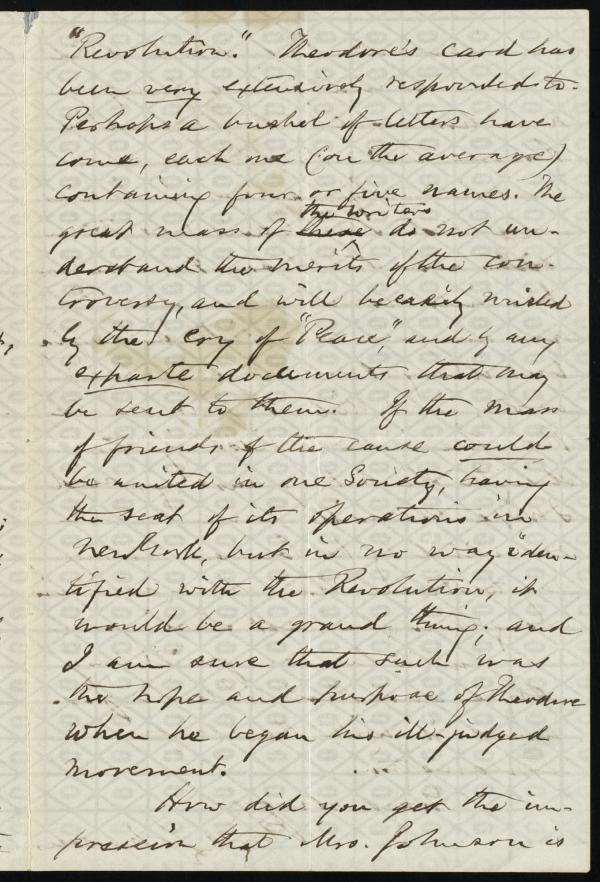 "Revolution." Theodore's card has
been very extensively responded to.
Perhaps a bushel of letters have
come, each one (on the average)
containing four or five names. The
the writers
great mass of these do not un-
derstand the merits of the con-
troversy, and will be easily misled
by the cry of "Peace," and by any
exparte documents that may
be sent to them. If the mass
of friends of the cause could
be united in one Society, having
the seat of its operations in
New York, but in no way iden-
tified with the Revolution, it
would be a grand thing; and
I am sure that such was
the hope and purpose of Theodore
when he began his ill-judged
movement.
How did you get the im-
pression that Mrs. Johnson is